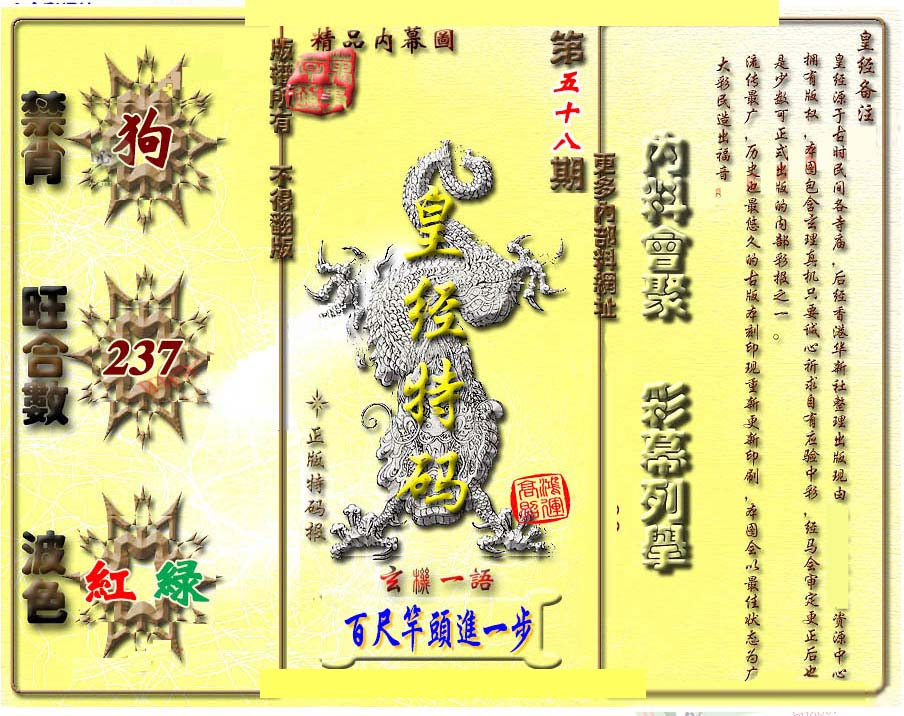 精品内幕圖
版權所有 不得翻版
第五十八期
更多內部料網址
禁肖
狗
旺合數
237
波色
紅 綠
皇经特码
正版特码报
鴻運高照
玄機一語
百尺竿頭進一步
內料會聚
彩幕列舉
皇经备注
皇经源于古时民间各寺庙，后经香港华新社整理出版现由 资源中心
拥有版权，本图包含玄理真机只要诚心祈求自有应验中彩，经马会审定更正后也
是少数可正式出版的内部彩报之一。
流传最广，历史也最悠久的古版本刻印现重新更新印刷，本图会以最佳状态为广
大彩民造出福音